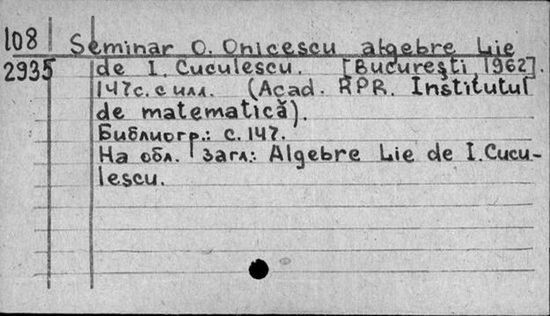 108 Seminar O. Onicescu algebre Lie
2935 de I. Cuculescu. [Bucureşti, 1962].
147с. с илл. (Acad. RPR. Institutul
de matematică).
Библиогр.: с. 147.
На обл. загл.: Algebre Lie de I. Cucu-
lescu.